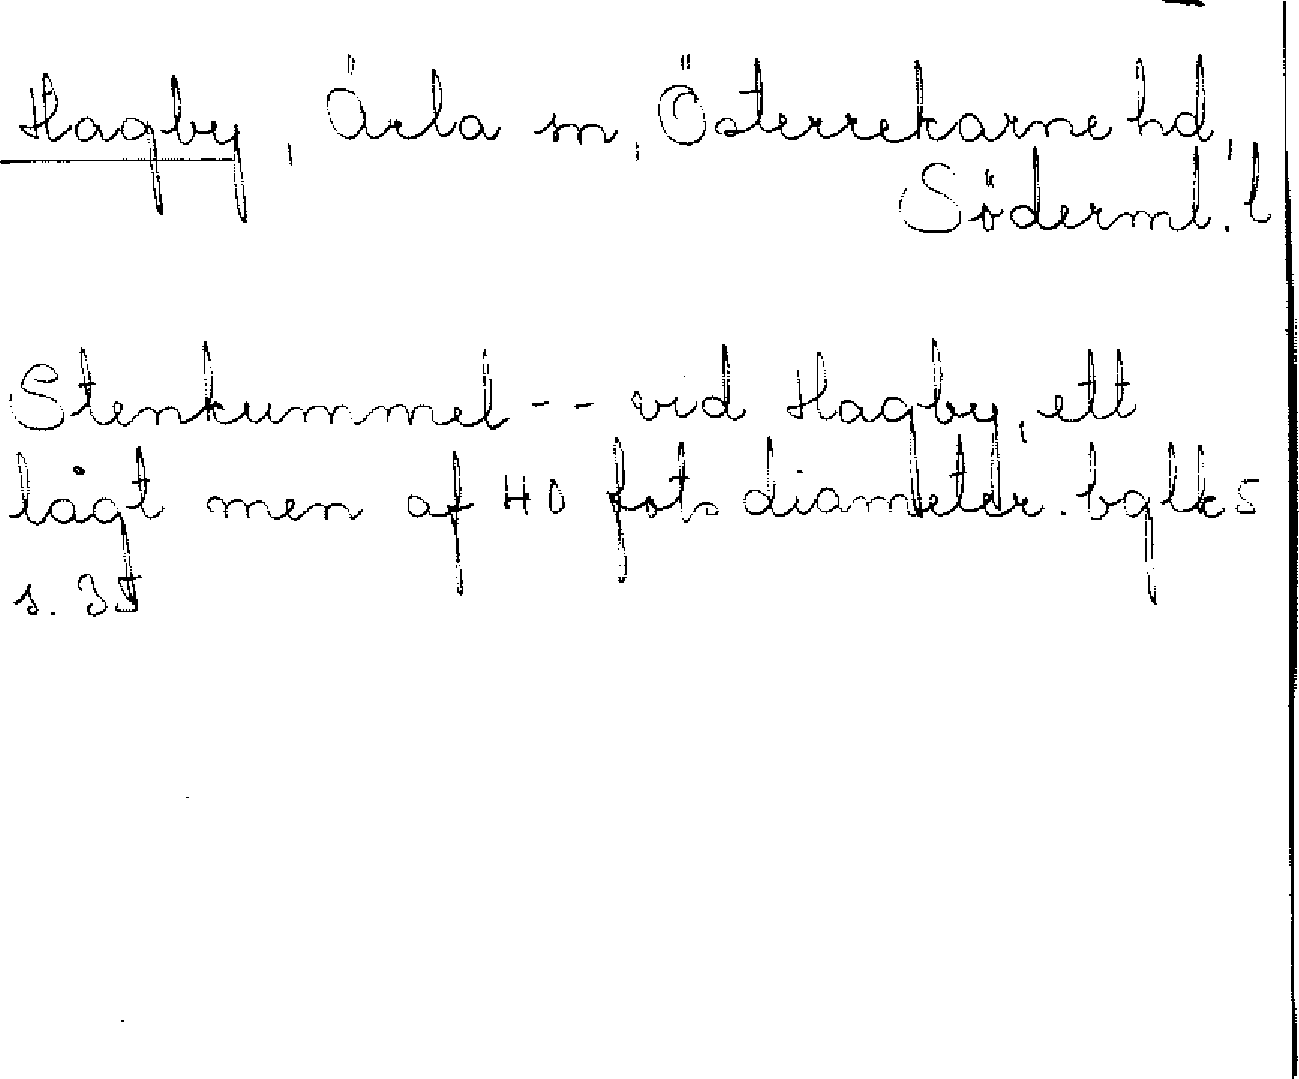 Hagby, Ärla sn, Österrekarne hd,
Söderml. l
Stenkummel -- vid Hagby, ett
lågt men af 40 fots diameter. bglk 5
s. 35